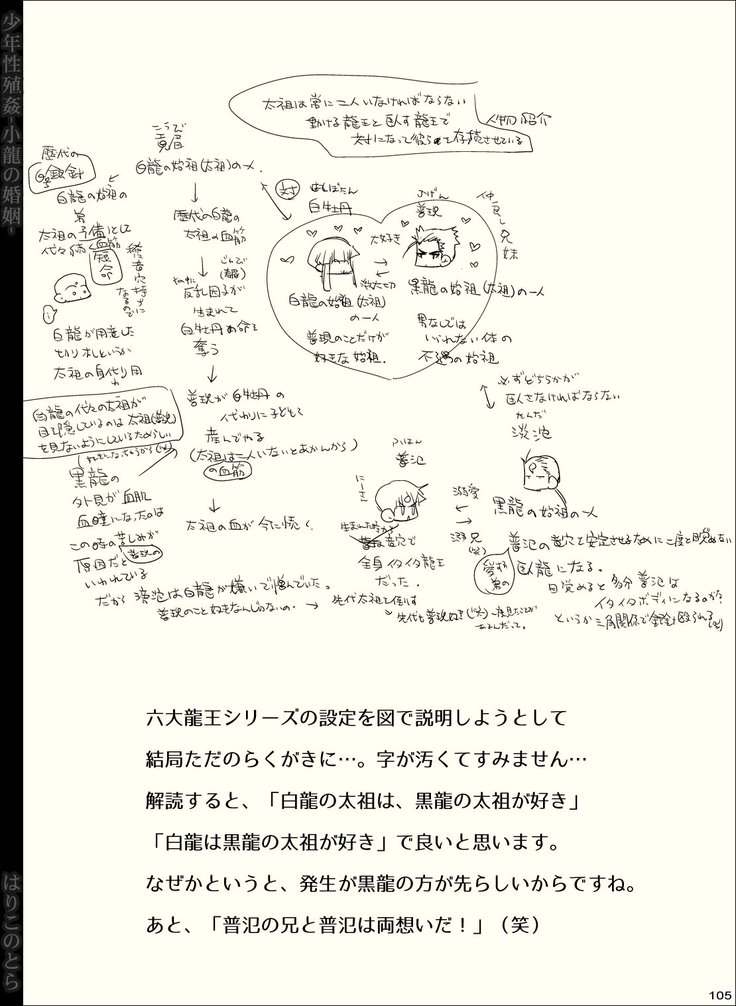 少年性殖姦-小龍の婚姻-
はりこのとら
太祖は常に二人いなければならない
動ける龍王と臥す龍王で
対になって彼らを存続させている
人物紹介
歴代の
白龍の始祖の
弟
太祖の予備として
代々続く血筋
短命
白龍が用意した
切り札というか
太祖の身代り用
白龍の代々の太祖が
目を隠しているのは太祖
を見ないようにしているためらしい
黒龍の
外見が血肌
血瞳になったのは
この時の苦しみが
原因だと
いわれている
白龍の始祖(太祖)の一人
↓
歴代の白龍の
太祖の血筋
↓
反乱因子が
生まれて
白牡丹の命を
奪う
↓
普現が白牡丹の
代わりに子ども
産んでやる
(太祖は二人いないとあかんから)
の血筋
↓
太祖の血が今に続く
対
はくぼたん
白牡丹
ふげん
普現
仲良し兄妹
大好き
→
←
激大切
白龍の始祖(太祖)
の一人
普現のことだけが
好きな始祖.
黒龍の始祖(太祖)の一人
男なしでは
いられない体の
不遇の始祖
※ずどちらかが
臥さなければならない
たんだ
淡池
黒龍の始祖の一人
普氾の竜穴を安定させるために二度と目覚めない
臥龍になる。
目覚めると多分普氾は
イタイタボディになるのか?
というか三角関係で
ふはん
普氾
にーさん
溺愛
←
→
溺兄
(笑)
全身イタイタ龍王
だった.
愛する弟の
だから淡池は白龍が嫌いで憎んでいた。
普現のこと好きなんじゃないの.
→先代太祖を倒す
六大龍王シリーズの設定を図で説明しようとして
結局ただのらくがきに…。字が汚くてすみません…
解読すると、「白龍の太祖は、黒龍の太祖が好き」
「白龍は黒龍の太祖が好き」で良いと思います。
なぜかというと、発生が黒龍の方が先らしいからですね。
あと、「普氾の兄と普氾は両想いだ！」（笑）
105